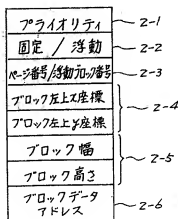 プライオリティ 2-1
固定 / 浮動 2-2
ページ番号/浮動ブロック番号 2-3
ブロック左上x座標
2-4
ブロック左上y座標
ブロック幅
2-5
ブロック高さ
ブロックデータ
アドレス 2-6